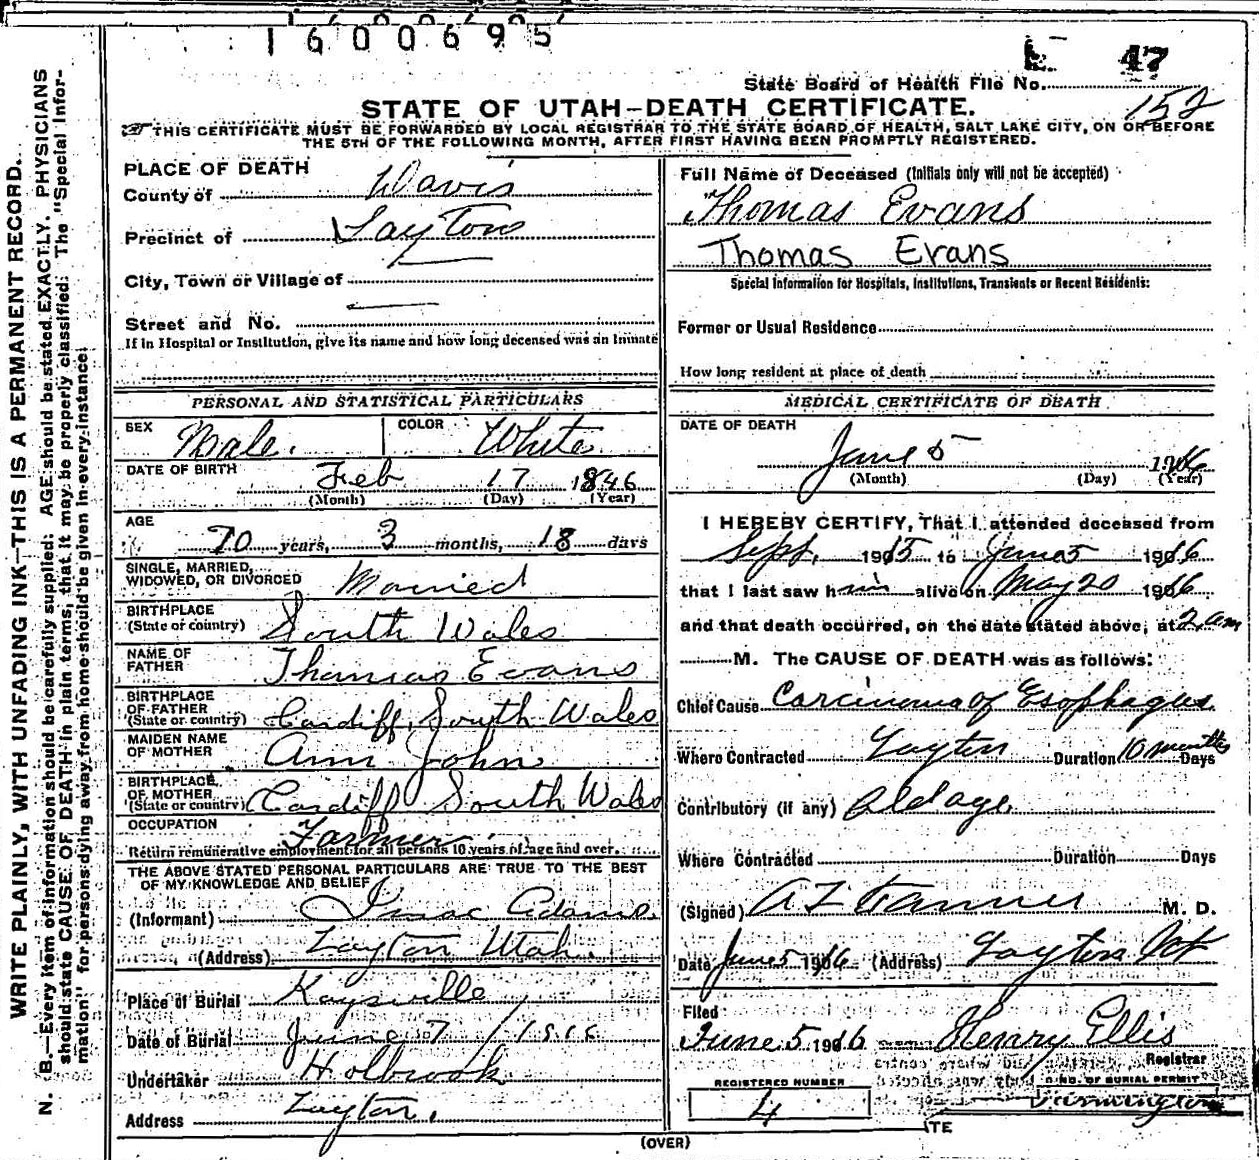 1600695
47
State Board of Health File No.
152
STATE OF UTAH—DEATH CERTIFICATE.
THIS CERTIFICATE MUST BE FORWARDED BY LOCAL REGISTRAR TO THE STATE BOARD OF HEALTH, SALT LAKE CITY, ON OR BEFORE
THE 5TH OF THE FOLLOWING MONTH, AFTER FIRST HAVING BEEN PROMPTLY REGISTERED.
WRITE PLAINLY, WITH UNFADING INK—THIS IS A PERMANENT RECORD.
N. B.—Every item of information should be carefully supplied. AGE should be stated EXACTLY. PHYSICIANS
should state CAUSE OF DEATH in plain terms, that it may be properly classified. The "Special Infor-
mation" for persons dying away from home should be given in every instance.
PLACE OF DEATH
County of Davis
Precinct of Layton
City, Town or Village of
Street and No.
If in Hospital or Institution, give its name and how long deceased was an inmate
PERSONAL AND STATISTICAL PARTICULARS
SEX Male. COLOR White
DATE OF BIRTH Feb 17 1846
(Month) (Day) (Year)
AGE
70 years, 3 months, 18 days
SINGLE, MARRIED,
WIDOWED, OR DIVORCED Married
BIRTHPLACE
(State or country) South Wales
NAME OF
FATHER Thomas Evans
BIRTHPLACE
OF FATHER
(State or country) Cardiff, South Wales
MAIDEN NAME
OF MOTHER Ann John
BIRTHPLACE
OF MOTHER
(State or country) Cardiff South Wales
OCCUPATION Farmer
Return remunerative employment for all persons 10 years of age and over.
THE ABOVE STATED PERSONAL PARTICULARS ARE TRUE TO THE BEST
OF MY KNOWLEDGE AND BELIEF
(Informant) Isaac Adams.
(Address) Layton Utah.
Place of Burial Kaysville
Date of Burial June 7/1916
Undertaker Holbrook
Address Layton.
Full Name of Deceased (Initials only will not be accepted)
Thomas Evans
Thomas Evans
Special Information for Hospitals, Institutions, Transients or Recent Residents:
Former or Usual Residence
How long resident at place of death
MEDICAL CERTIFICATE OF DEATH
DATE OF DEATH
June 5 1916
(Month) (Day) (Year)
I HEREBY CERTIFY, That I attended deceased from
Sept. 1915 to June 5 1916
that I last saw him alive on May 20 1916
and that death occurred, on the date stated above, at 2 am
M. The CAUSE OF DEATH was as follows:
Chief Cause Carcinoma of Esophagus.
Where Contracted Layton Duration 10 months Days
Contributory (if any) Old age.
Where Contracted Duration Days
(Signed) A Z Tanner M. D.
Date June 5 1916 (Address) Layton Ut
Filed
June 5 1916 Henry Ellis
Registrar
REGISTERED NUMBER
4
NO. OF BURIAL PERMIT
Farmington
(OVER)